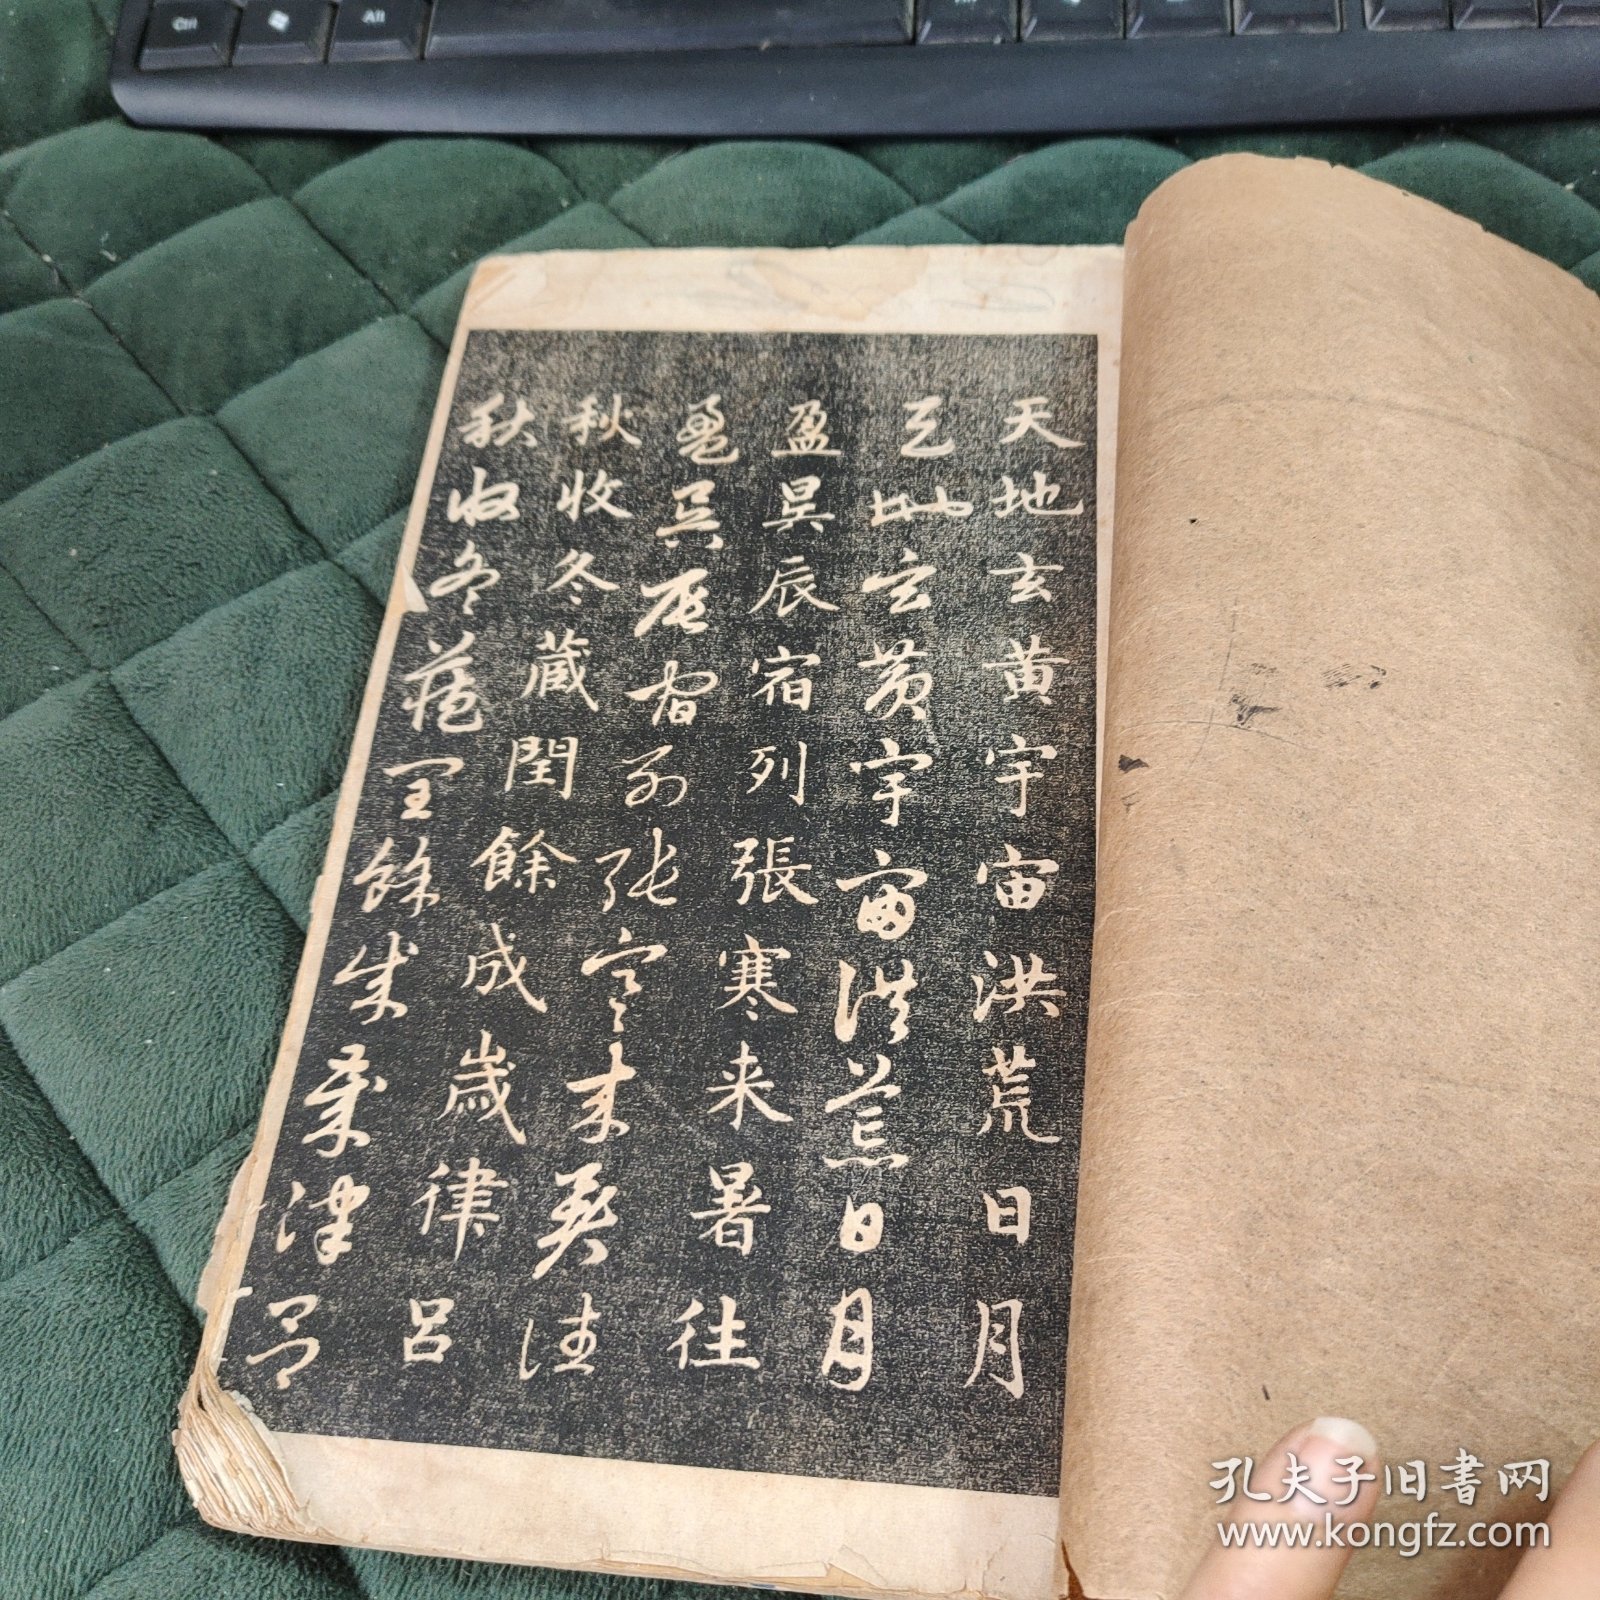 天地玄黄宇宙洪荒日月
天地玄黄宇宙洪荒日月
盈昃辰宿列張寒来暑往
盈昃辰宿列張寒来暑往
秋收冬蔵閏餘成歳律呂
秋收冬蔵閏餘成歳律呂
Ctrl
Alt
孔夫子旧书网
www.kongfz.com